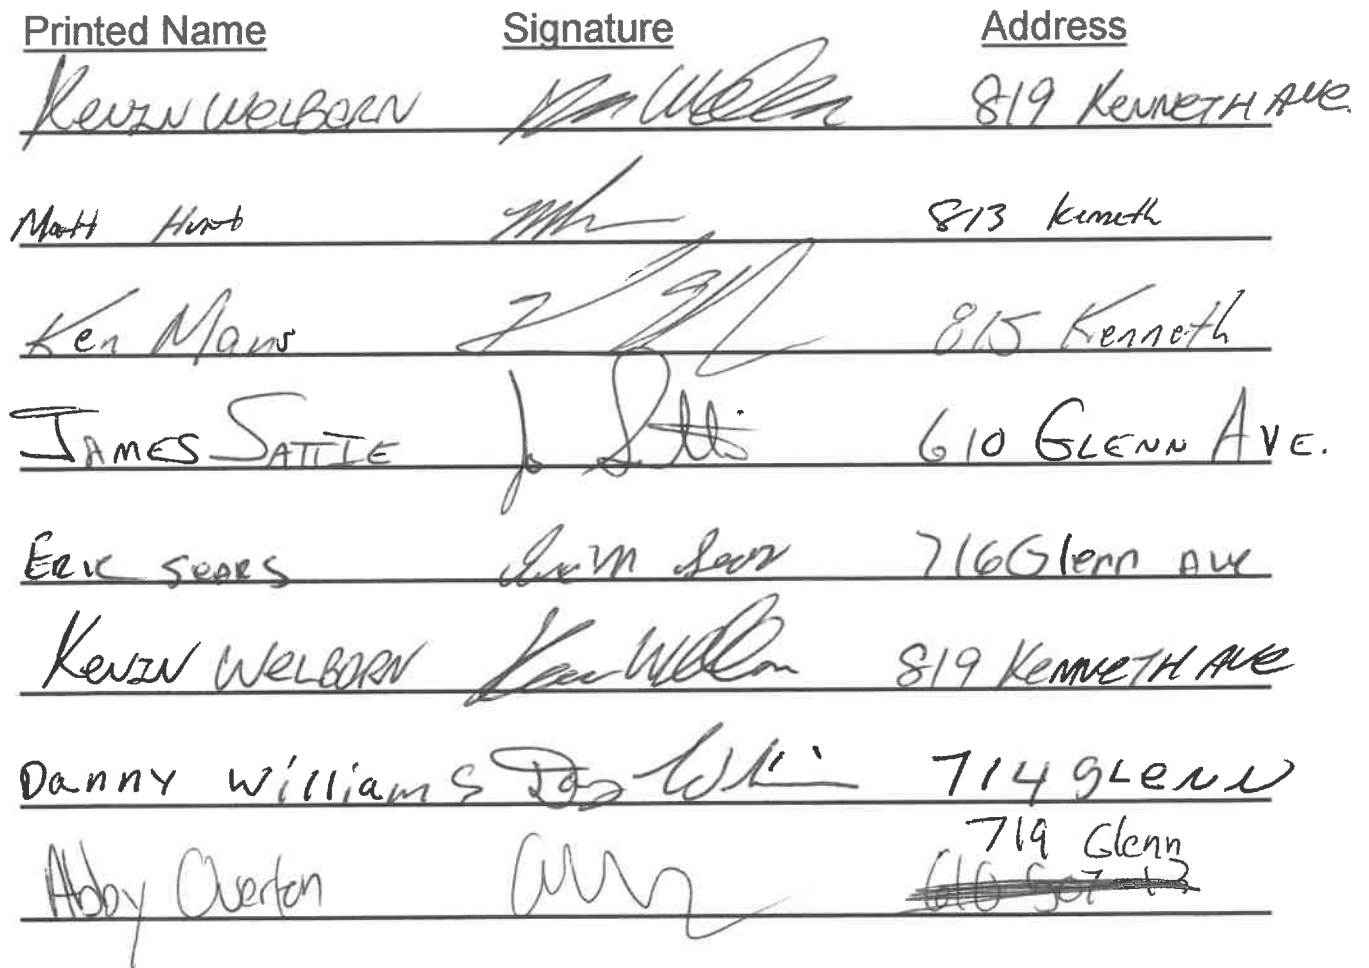 Printed Name Signature Address
KEVIN WELBORN 819 KENNETH AVE.
Matt Hunt 813 Kenneth
Ken Mans 815 Kenneth
JAMES SATTIE 610 GLENN AVE.
ERIK SEARS 716 Glenn AVE
KEVIN WELBORN 819 KENNETH AVE
Danny Williams 714 GLENN
719 Glenn
Abby Overton